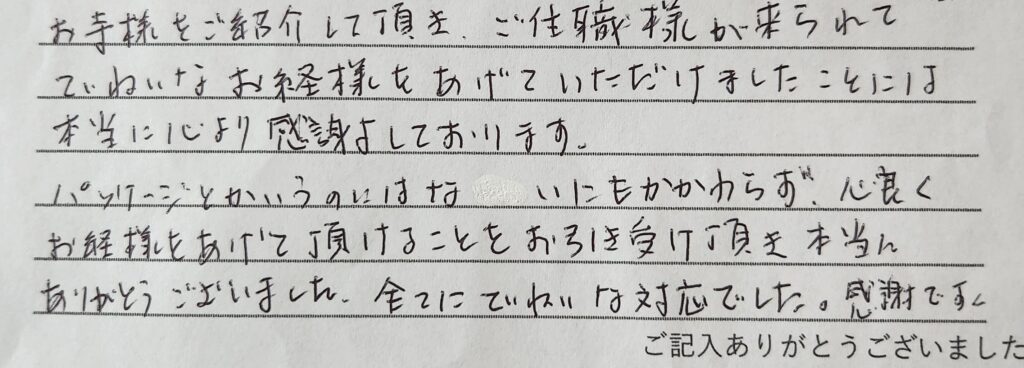 お寺様をご紹介して頂き、ご住職様が来られて
ていねいなお経様をあげていただけましたことには
本当に心より感謝よしております。
パッケージとかいうのにはないにもかかわらず、心良く
お経様をあげて頂けることをお引き受け頂き本当に
ありがとうございました。全てにていねいな対応でした。感謝です
ご記入ありがとうございました